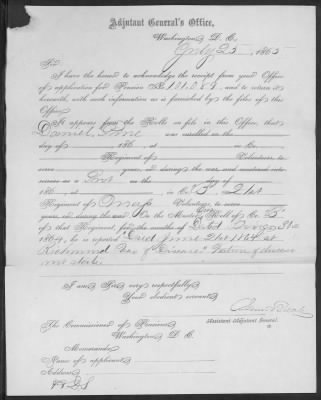 Adjutant General's Office,
Washington D. C.
July 25, 1865
Sir
I have the honor to acknowledge the receipt from your Office
of application for Pension No. 101.081, and to return it
herewith, with such information as is furnished by the files of this
Office.
It appears from the Rolls on file in this Office, that
Daniel was enrolled on the
day of 186 , at in Co.
Regiment of Volunteers, to
serve years, or during the war, and mustered into ser-
vice as a on the day of
186 , at , in Co. 21st
Regiment of Mass Volunteers, to serve
years, or during the war. On the Muster Roll of Co.
of that Regiment, for the months of
1864, he is reported "Died June 21st 1864 at
Richmond Va of Disease" Nature of disease
not stated.
I am, Sir, very respectfully,
Your obedient servant,
Assistant Adjutant General.
The Commissioner of Pensions,
Washington, D. C.
Memoranda.
Name of applicant
Address